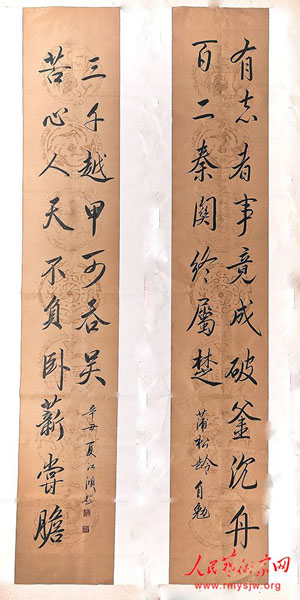 有志者事竟成破釜沉舟
百二秦関終屬楚
蒲松龄自勉
苦心人天不負卧薪嘗膽
三千越甲可吞吴
辛丑夏江
人民藝術家网
www.rmysjw.org